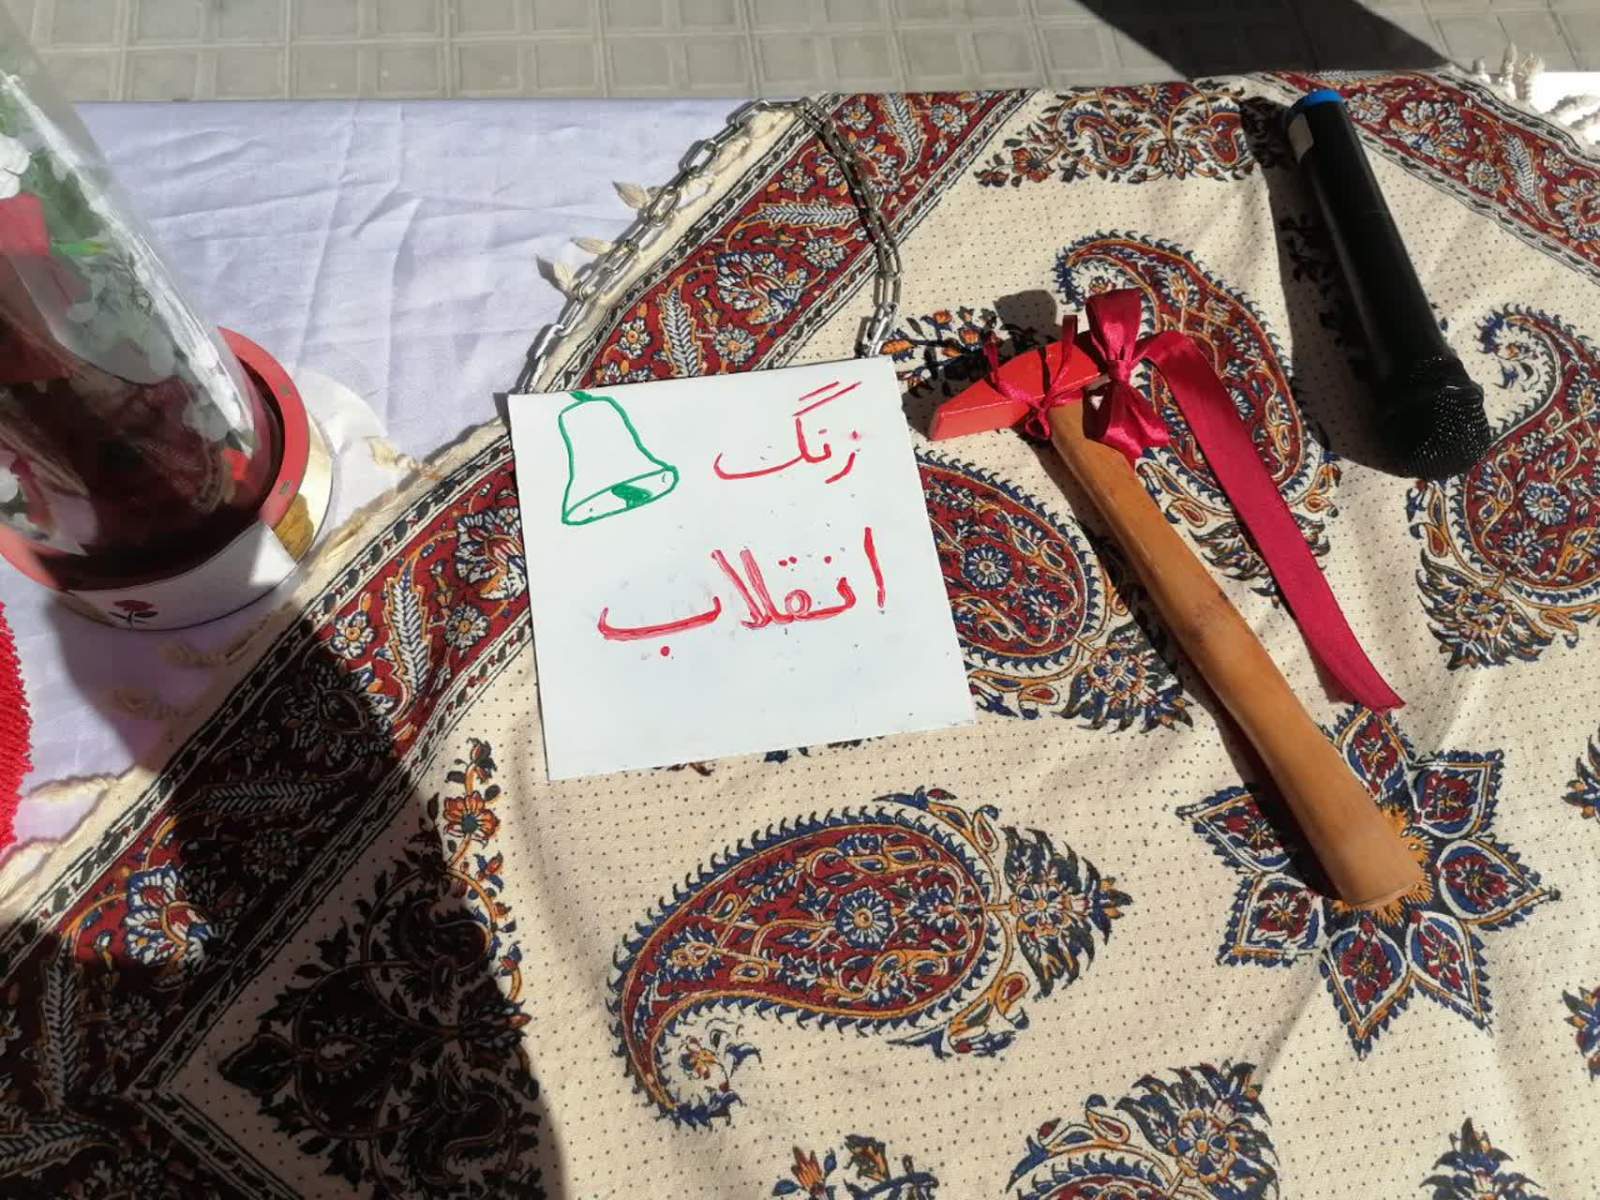 زنگ
انقلاب